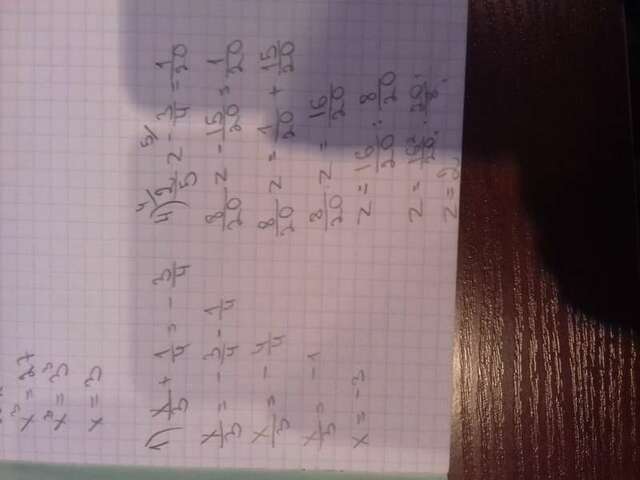 x³ = 27
x³ = 3³
x = 3
1) x/3 + 1/4 = - 3/4
x/3 = - 3/4 - 1/4
x/3 = - 4/4
x/3 = -1
x = -3
4/ 5/
4) 2/5 z - 3/4 = 1/20
8/20 z - 15/20 = 1/20
8/20 z = 1/20 + 15/20
8/20 · z = 16/20
z = 16/20 : 8/20
z = 16²/20₁ · 20¹/8₁
z = 2